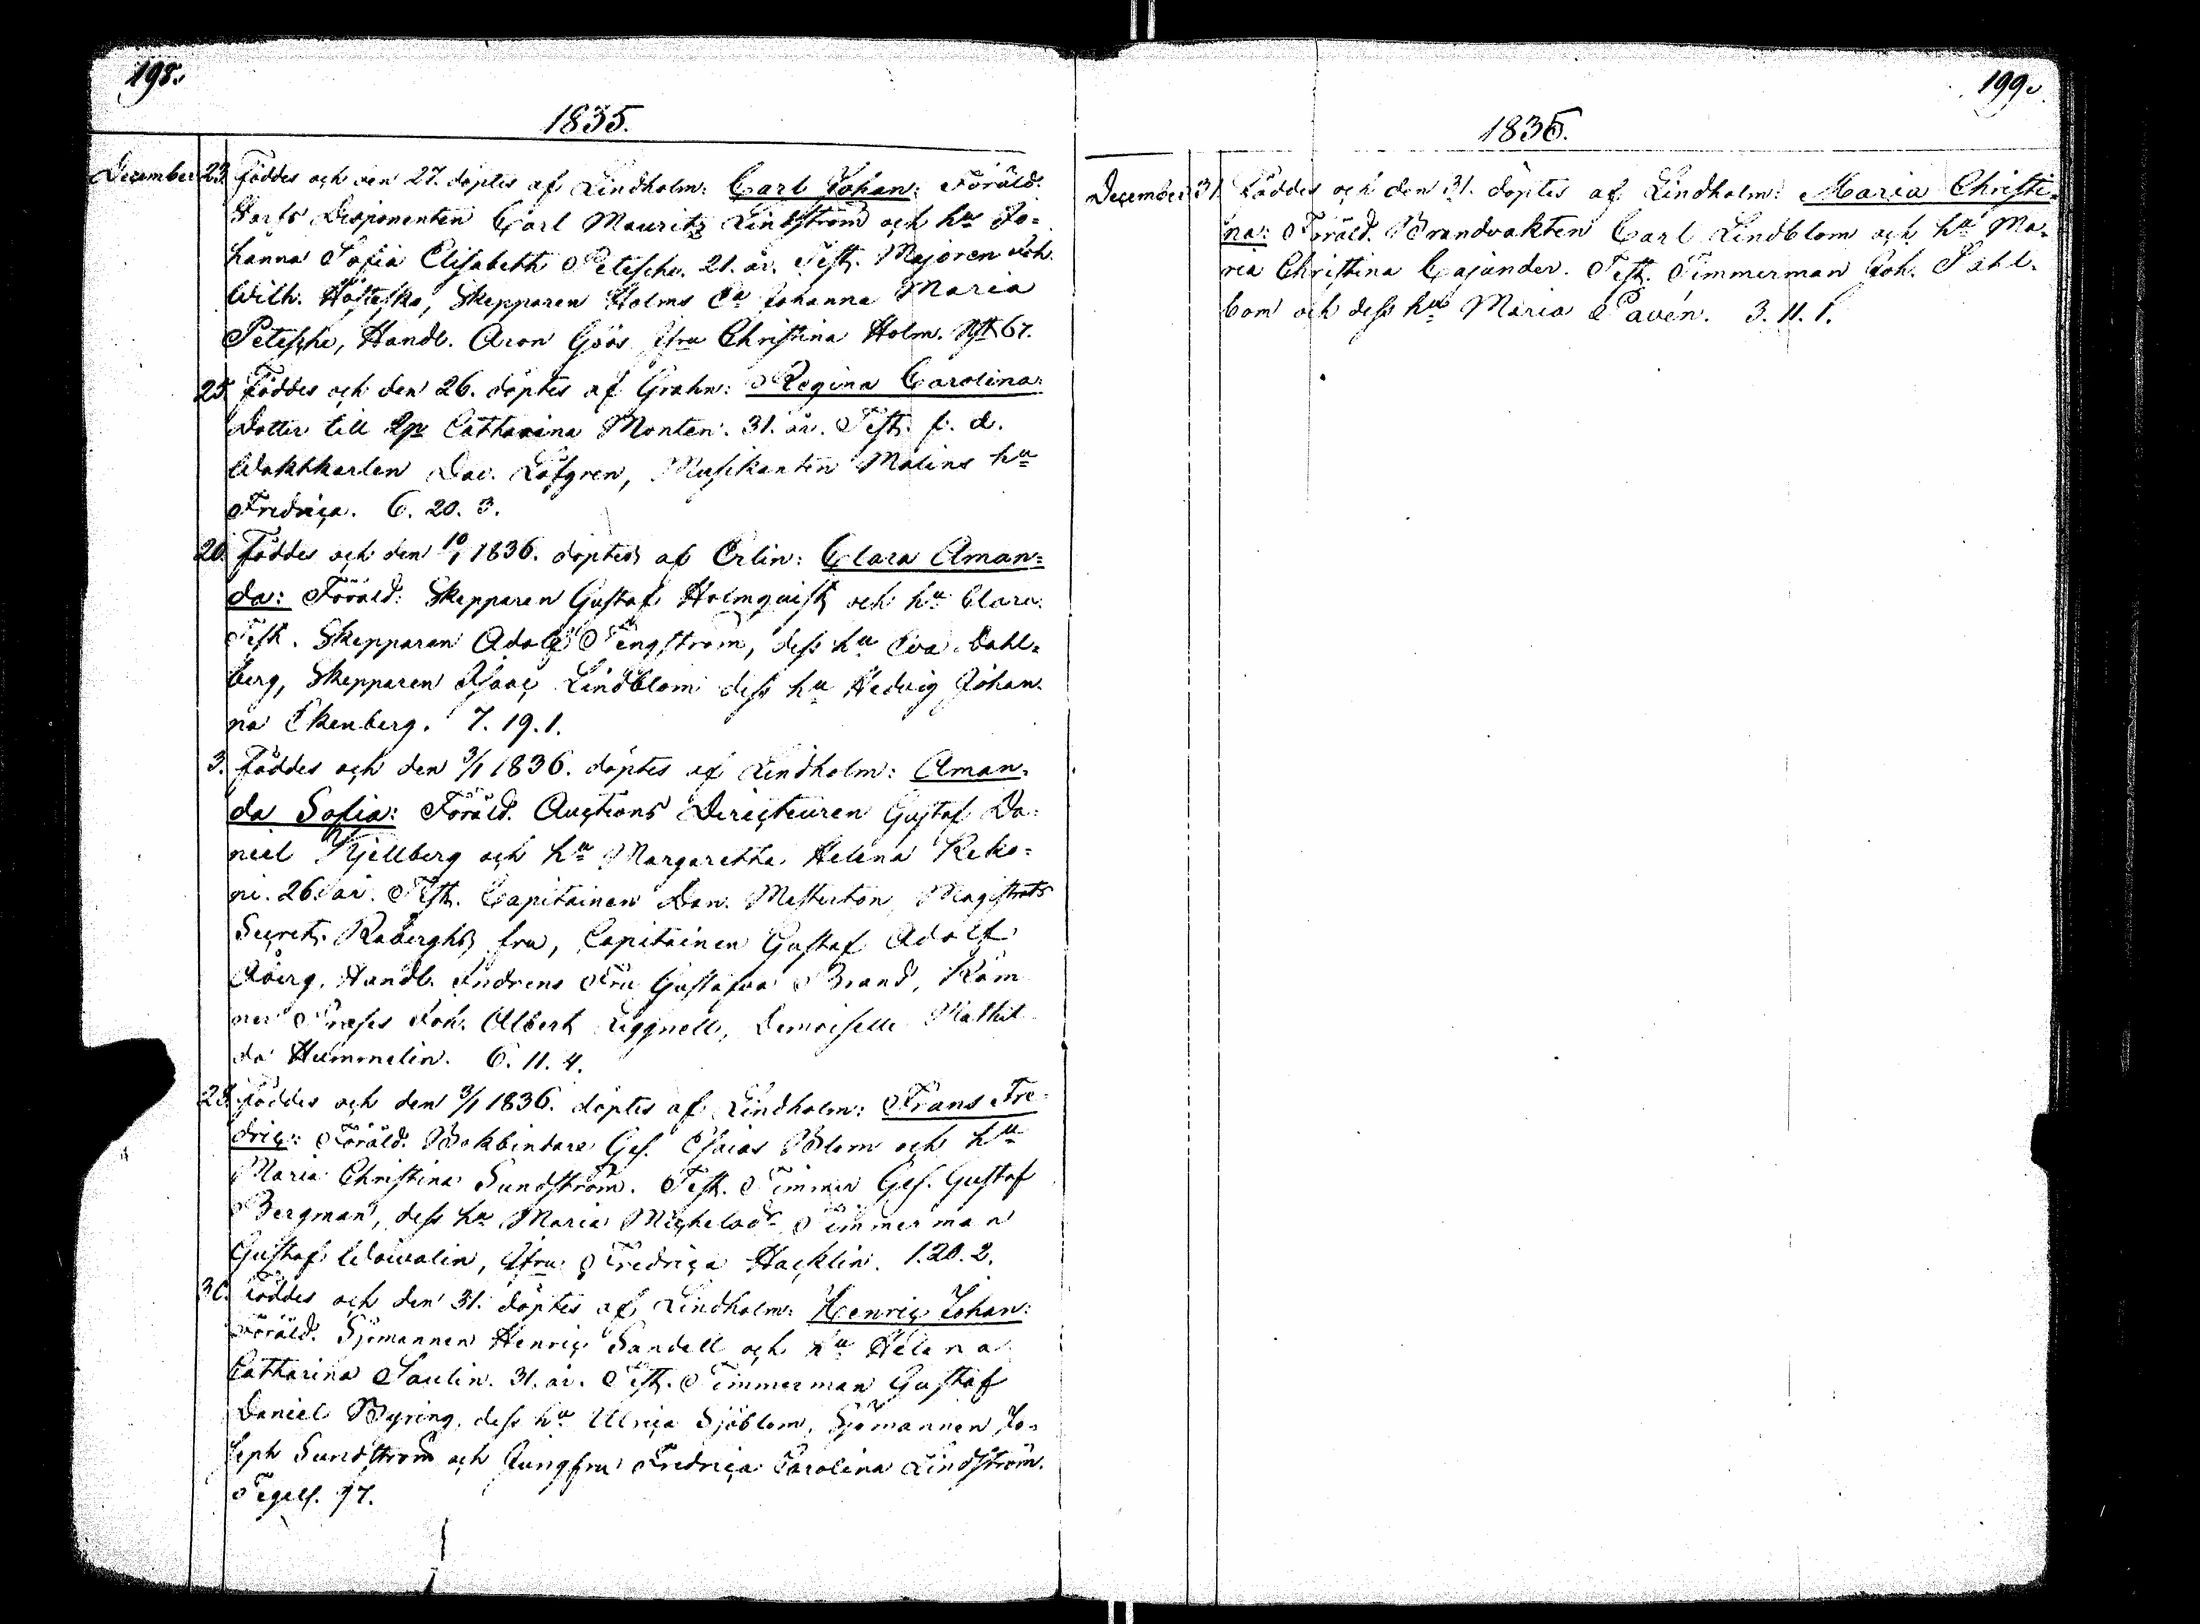 198.
1835.
December 23. Föddes och den 27. döptes af Lindholm: Carl Johan: Föräld.
Disponenten Carl Mauritz Lindström och hu Jo-
hanna Sofia Elisabeth Petesche. 21. år. Test. Majoren Joh.
Wilh. Skepparen Holms Johanna Maria
Petesche, Handl. Aron Göös Jfru Christina Holm. 67.
25. Föddes och den 26. döptes af Grahn: Regina Carolina:
Dotter till Catharina Monten. 31. år. Test. f. d.
Waktkarlen Dav. Löfgren, Musikanten Malins hu
Fredrica. 6. 20. 3.
20. Föddes och den 10/1 1836. döptes af Erlin: Clara Aman-
da: Föräld: Skepparen Gustaf Holmquist och hu Clara.
Test. Skepparen Adolf Tengström, dess hu Eva Dahl-
berg, Skepparen Isaac Lindblom dess hu Hedvig Johan-
na Ekenberg. 7. 19. 1.
3. Föddes och den 3/1 1836. döptes af Lindholm: Aman-
da Sofia: Föräld. Auctions Directeuren Gustaf Da-
niel Kjellberg och hu Margaretha Helena Keko-
ni. 26 år. Test. Capitainen Dan. Mesterton, Magistrats
Secret. Raberghs fru, Capitainen Gustaf Adolf
Åberg, Handl. Indrens Fru Gustafva Brand, Käm-
ner Præses Joh. Albert Liggnell, Demoiselle Mathil-
da Hummelin. 6. 11. 4.
28. Föddes och den 3/1 1836. döptes af Lindholm: Frans Fre-
dric: Föräld. Bokbindare Ges. Esaias Blom och hu
Maria Christina Sundström. Test. Timmer Ges. Gustaf
Bergman, dess hu Maria Michelsdr Timmerman
Gustaf Wawalin, Jfru Fredrica Hacklin. 1. 20. 2.
30. Föddes och den 31. döptes af Lindholm: Henric Johan:
Föräld. Sjömannen Henric Sandell och hu Helena
Catharina Saulin. 31. år. Test. Timmerman Gustaf
Daniel Byring, dess hu Ulrica Sjöblom, Sjömannen Jo-
seph Sundström och Jungfru Fredrica Carolina Lindström.
Tegels. 97.
199.
1835.
December 31. Föddes och den 31. döptes af Lindholm: Maria Christi-
na: Föräld. Brandvakten Carl Lindblom och hu Ma-
ria Christina Cajander. Test. Timmerman Joh. Dahl-
bom och dess hu Maria Pavén. 3. 11. 1.